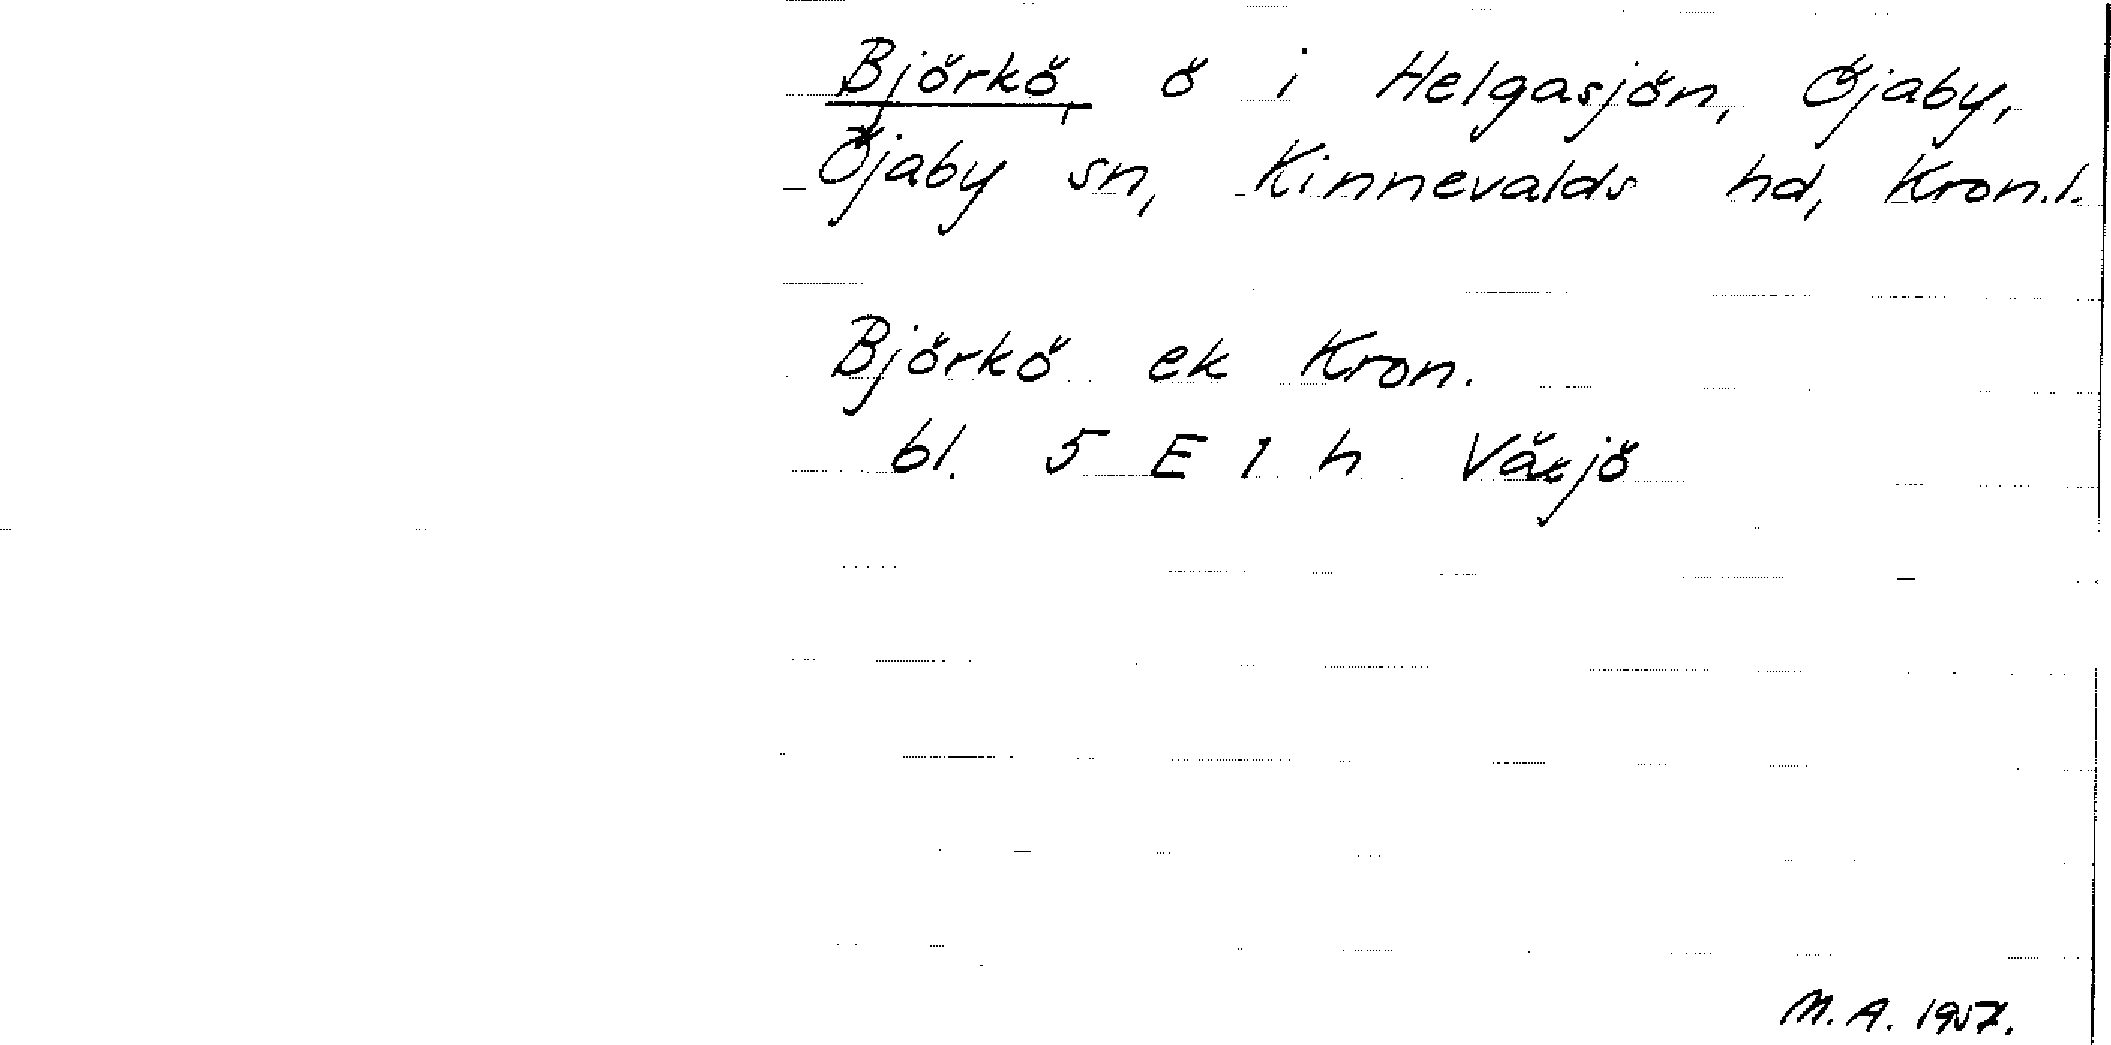 Björkö, ö i Helgasjön, Öjaby,
Öjaby sn, Kinnevalds hd, Kron.l.
Björkö ek Kron.
bl. 5 E 1 h Växjö
M.A. 1957.